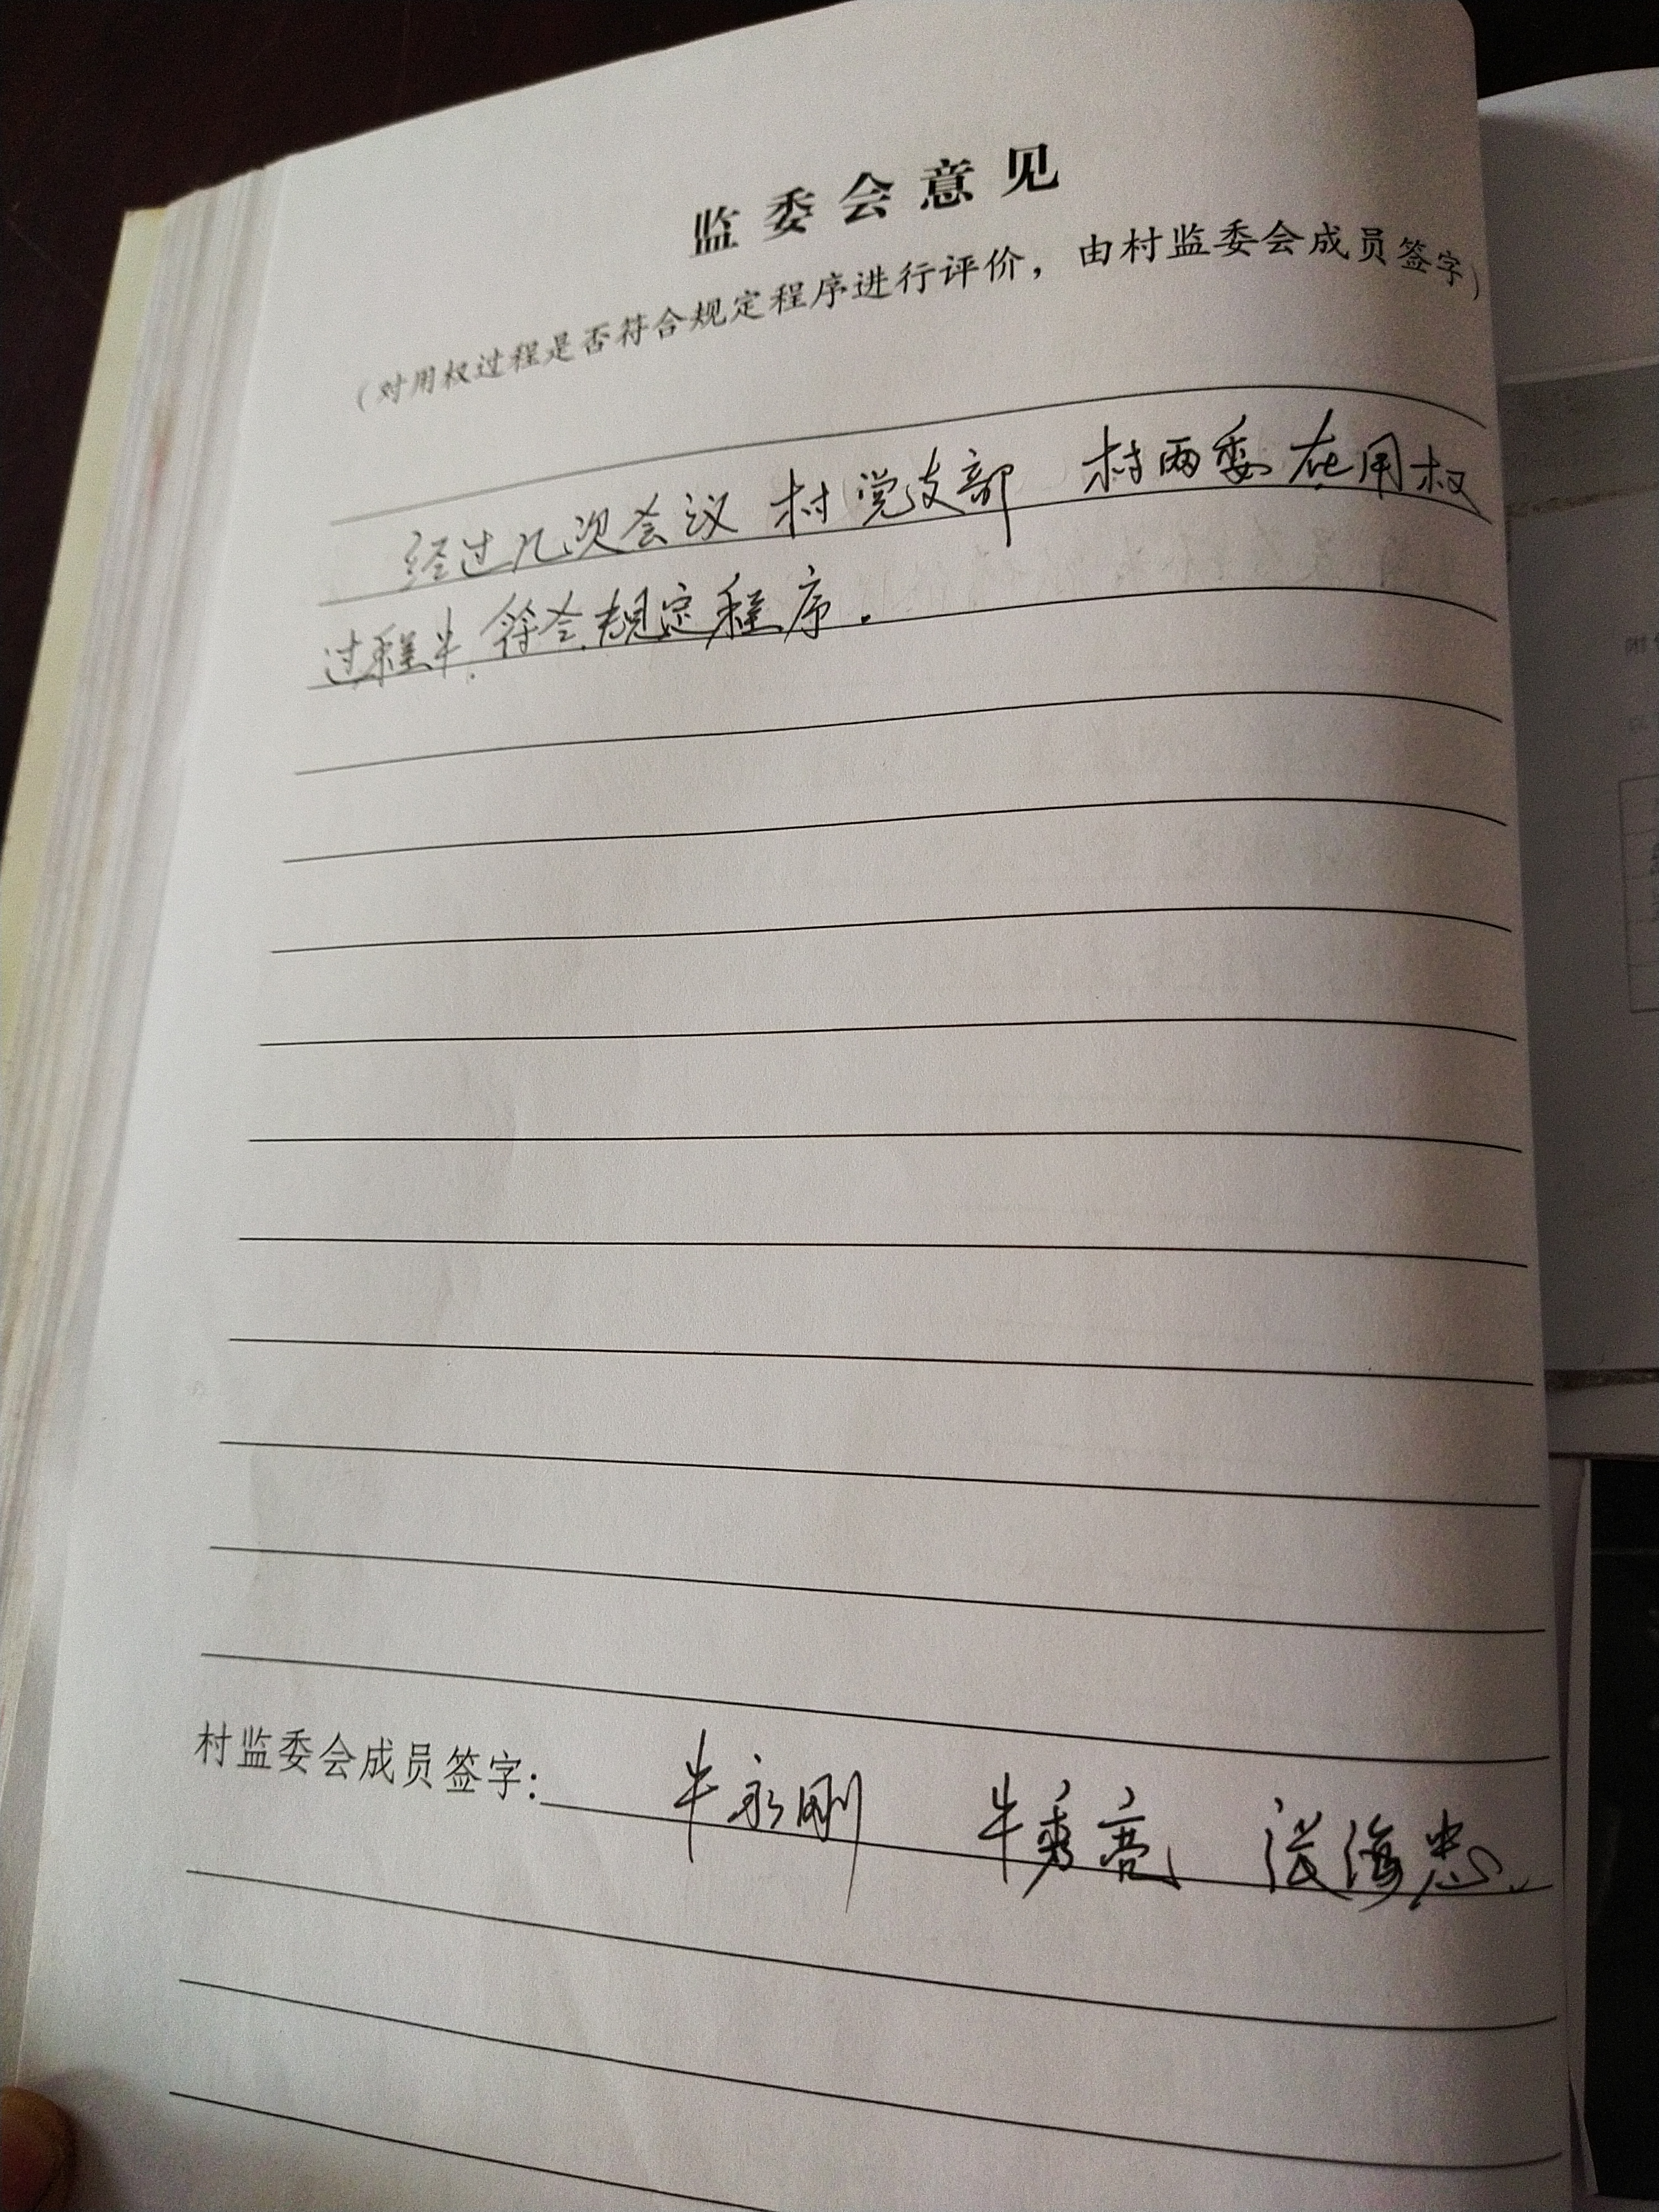 监委会意见
（对用权过程是否符合规定程序进行评价，由村监委会成员签字）
经过几次会议 村党支部 村两委在用权
过程中.符合规定程序.
村监委会成员签字: 牛永刚 牛秀亮 海忠